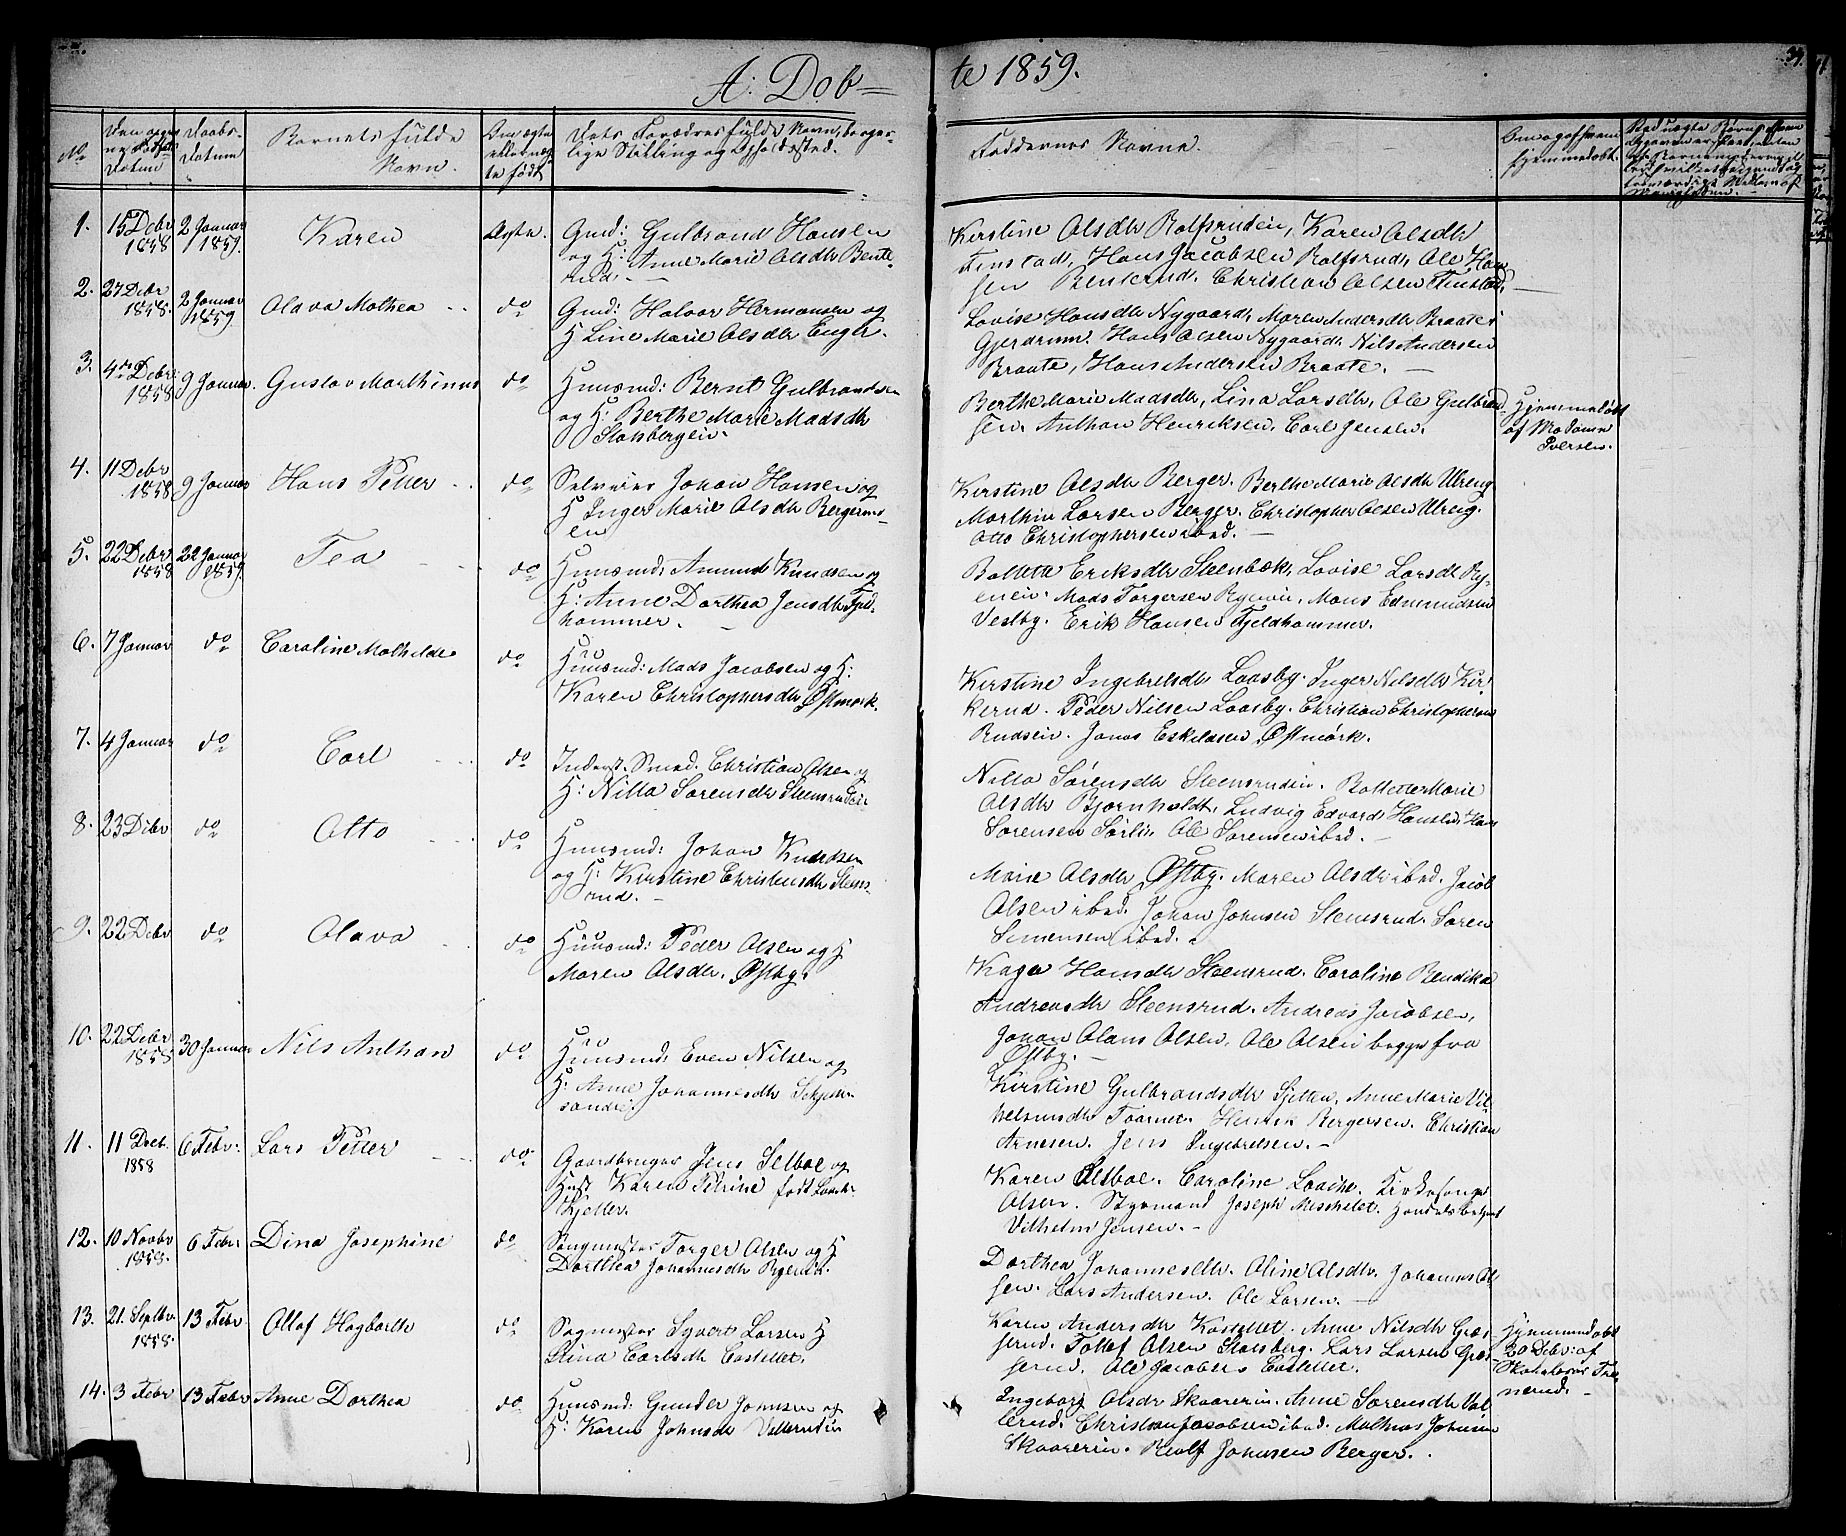 A. Døb-
te 1859.
39.
No
Daabs-
Datum
Barnets fulde
Navn.
Om ægte
eller uæg-
te født
Dets Forældres fulde Navn, borger-
lige Stilling og Opholdssted.
Faddernes Navne.
Om og af hvem
hjemmedøbt.
1. 15 Debr 1858
2 Januar 1859.
Karen
Ægte.
Gmd: Gulbrand Hansen
og H: Anne Marie Olsdtr Bente-
rud.
Kirstine Olsdtr Rolfsrudein, Karen Olsdtr
Finstad, Hans Jacobsen Rolfsrud, Ole Han-
sen Benterud, Christian Olsen Finstad.
2. 27 Debr 1858.
2 Januar 1859
Olava Mathea
do
Gmd: Halvor Hermansen og
H Line Marie Olsdtr Enger.
Lovise Hansdtr Nygaard, Maren Andersdtr Braate i
Gjerdrum. Hans Olsen Nygaard, Nils Andersen
Braate, Hans Andersen Braate.
3. 4de Debr 1858
9 Januar.
Gustav Marthinus
do
Huusmd: Bernt Gulbrandsen
og H: Berthe Marie Madsdtr
Stalsbergein.
Berthe Marie Madsdtr, Lina Larsdtr, Ole Gulbrand-
sen. Anthon Henriksen. Carl Jensen.
Hjemmedøbt
af Madame
Iversen.
4. 11 Debr 1858
9 Januar
Hans Petter
do
Selveier Johan Hansen og
H Inger Marie Olsdtr Bergerm-
en
Kirstine Olsdtr Berger. Berthe Marie Olsdtr Ulreng
Marthin Larsen Berger. Christopher Olsen Ulreng.
Otto Christophersen ibid.
5. 22 Debr 1858
22 Januar 1859.
Tea
do
Huusmd: Amund Knudsen og
H: Anne Dorthea Jensdtr Fjeld-
hammer.
Bolleta Eriksdtr Steenbæk, Lovise Larsdtr Ry-
enein. Mads Torgersen Ryenein. Mons Edmundsen
Vestby. Erik Hansen Fjeldhammer.
6. 7 Januar
do
Caroline Mathilde
do
Huusmd: Mads Jacobsen og H:
Karen Christophersdtr Østmork.
Kirstine Ingebretsdtr Laasby. Inger Nilsdtr Kir-
kerud. Peder Nilsen Laasby. Christian Christophersen
Rudsein. Jonas Eskildsen Østmork.
7. 4 Januar
do
Carl
do
Inderst. Smed. Christian Olsen og
H: Nilla Sørensdtr Steensrudein
Nilla Sørensdtr Steensrudein. Bolletta Marie
Olsdtr Bjørnholdt, Ludvig Edvard Hansen, Hans
Sørensen Sørli. Ole Sørensen ibid.
8. 23 Debr
do
Otto
do
Huusmd: Johan Knudsen
og H: Kirstine Christensdtr Steens-
rud.
Marie Olsdtr Østby. Maren Olsdtr ibid. Jacob
Olsen ibid. Johan Johnsen Steensrud. Søren
Simensen ibid.
9. 22 Debr
do
Olava
do
Huusmd: Peder Olsen og H
Maren Olsdtr. Østby.
Kaja Hansdtr Steensrud. Caroline Bendikte
Andreasdtr Steensrud. Andreas Jacobsen,
Johan Olaus Olsen, Ole Olsen begge fra
Østby.
10. 22 Debr 1858
30 Januar
Nils Anthon
do
Huusmd: Even Nilsen og
H: Anne Johannesdtr
Kirstine Gulbrandsdtr Sjetten. Anne Marie Vil-
helmsdtr Taarnet. Henrik Bergersen. Christian
Arnesen. Jens Ingebretsen.
11. 11 Decb. 1858
6 Febr.
Lars Petter
do
Gaardbruger Jens Selboe og
Hust Karen Petrine født Laache
Kjeller.
Karen Selboe. Caroline Laache. Kirkesanger
Olsen. Styrmand Joseph Mischelet. Handelsbetjent
Vilhelm Jensen.
12. 10 Novbr 1858.
6 Febr
Dina Josephine
do
Sagmester Torger Olsen og H
Dorthea Johannesdtr Ryenein.
Dorthea Johannesdtr. Oline Olsdtr. Johannes Ol-
sen. Lars Andersen. Ole Larsen.
13. 21. Septbr. 1858.
13 Febr
Ollaf Hagbarth
do
Sagmester Syvert Larsen H
Stina Carlsdtr Castellet.
Karen Andersdtr Kastellet. Anne Nilsdtr Græs-
serud. Tollef Olsen Stalsberg. Lars Larsen Græs-
serud. Ole Jacobsen Castellet.
Hjemmedøbt
20 Debr: af
Skolelærer
14. 3 Febr
13 Febr
Anne Dorthea
do
Huusmd: Gunder Johnsen og
H: Karen Johnsdtr Vallerudein
Ingeborg Olsdtr Skaarerein. Anne Sørensdtr Val-
lerud. Christian Jacobsen ibid. Mathias Johnsen
Skaarerein. Rolf Johnsen Berger.